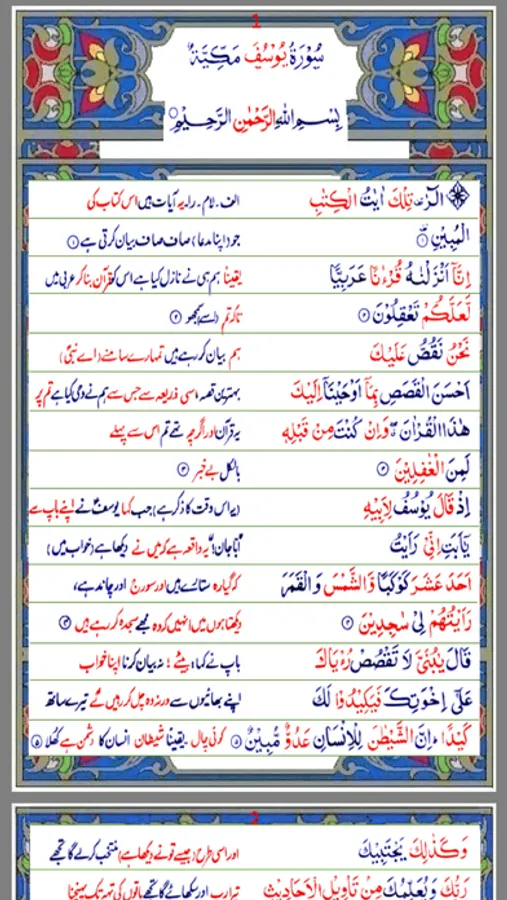 1
سُوْرَةُ يُوْسُفَ مَكِّيَّةٌ
بِسْمِ اللهِ الرَّحْمٰنِ الرَّحِيْمِ
الٓرٰ تِلْكَ اٰيٰتُ الْكِتٰبِ الف۔ لام۔ را۔ یہ آیات ہیں اس کتاب کی
الْمُبِيْنِ ۱ جو (اپنا مدعا) صاف صاف بیان کرتی ہے ۱
اِنَّاۤ اَنْزَلْنٰهُ قُرْءٰنًا عَرَبِيًّا یقیناً ہم ہی نے نازل کیا ہے اس کو قرآن بنا کر عربی میں
لَّعَلَّكُمْ تَعْقِلُوْنَ ۲ تاکہ تم (اسے) سمجھو ۲
نَحْنُ نَقُصُّ عَلَيْكَ ہم بیان کر رہے ہیں تمہارے سامنے (اے نبیؐ)
اَحْسَنَ الْقَصَصِ بِمَاۤ اَوْحَيْنَاۤ اِلَيْكَ بہترین قصہ، اسی ذریعہ سے جس سے ہم نے وحی کیا ہے تم پر
هٰذَا الْقُرْاٰنَ ۖ وَاِنْ كُنْتَ مِنْ قَبْلِهٖ یہ قرآن اور اگرچہ تھے تم اس سے پہلے
لَمِنَ الْغٰفِلِيْنَ ۳ بالکل بے خبر ۳
اِذْ قَالَ يُوْسُفُ لِاَبِيْهِ (یہ اس وقت کا ذکر ہے) جب کہا یوسفؑ نے اپنے باپ سے
يٰۤاَبَتِ اِنِّيْ رَاَيْتُ "اباجان! یہ واقعہ ہے کہ میں نے دیکھا ہے (خواب میں)
اَحَدَ عَشَرَ كَوْكَبًا وَّالشَّمْسَ وَالْقَمَرَ کہ گیارہ ستارے ہیں اور سورج اور چاند ہے،
رَاَيْتُهُمْ لِيْ سٰجِدِيْنَ ۴ دیکھتا ہوں میں انہیں کہ وہ مجھے سجدہ کر رہے ہیں ۴
قَالَ يٰبُنَيَّ لَا تَقْصُصْ رُءْيَاكَ باپ نے کہا: بیٹے! نہ بیان کرنا اپنا خواب
عَلٰۤى اِخْوَتِكَ فَيَكِيْدُوْا لَكَ اپنے بھائیوں سے ورنہ وہ چل کر رہیں گے تیرے ساتھ
كَيْدًا ؕ اِنَّ الشَّيْطٰنَ لِلْاِنْسَانِ عَدُوٌّ مُّبِيْنٌ ۵ کوئی چال۔ یقیناً شیطان انسان کا دشمن ہے کھلا ۵
2
وَكَذٰلِكَ يَجْتَبِيْكَ اور اسی طرح (جیسے تو نے دیکھا ہے) منتخب کرے گا تجھے
رَبُّكَ وَيُعَلِّمُكَ مِنْ تَاْوِيْلِ الْاَحَادِيْثِ تیرا رب اور سکھائے گا تجھے باتوں کی تہہ تک پہنچنا